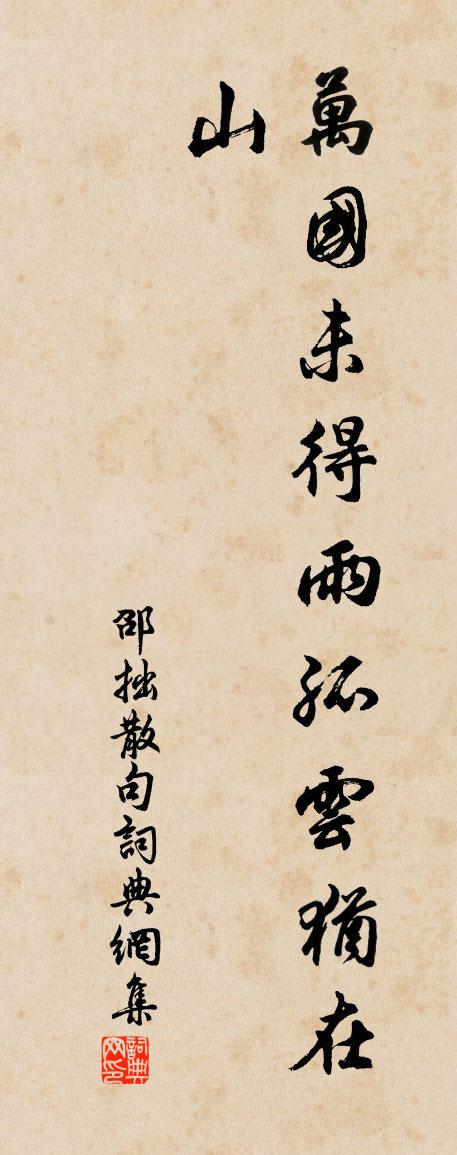 萬國未得雨孤雲猶在
山
邵拙散句詞典網集
詞典
网印